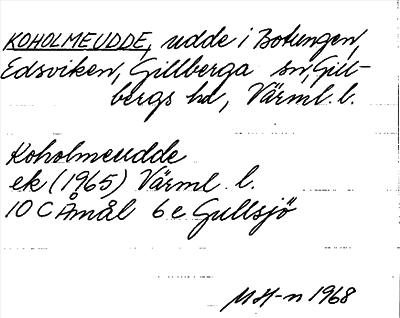 KOHOLMEUDDE, udde i Botungen,
Edsviken, Gillberga sn, Gill-
bergs hd, Värml. l.
Koholmeudde
ek (1965) Värml. l.
10 C Åmål 6 e Gullsjö
MH-n 1968